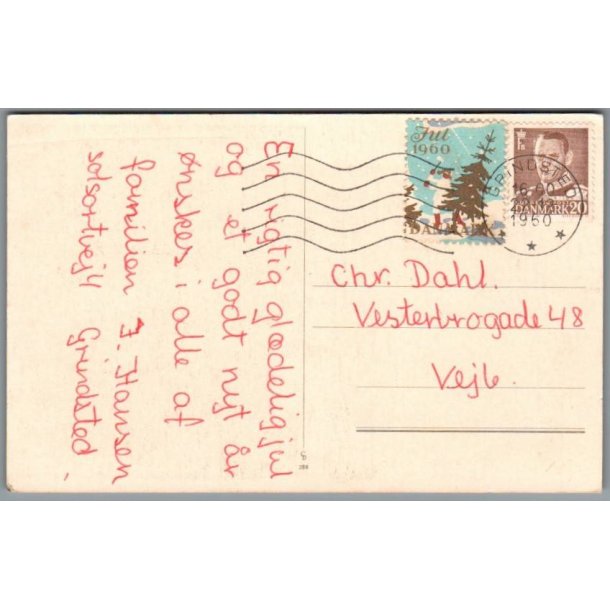 En rigtig glædelig jul
og et godt nyt år
ønskes i alle af
familien J. Hansen
solsortvej 4 Grindsted.
Jul
1960
DANMARK
DANMARK 20
GRINDSTED
1960
Chr. Dahl.
Vesterbrogade 48
Vejle.